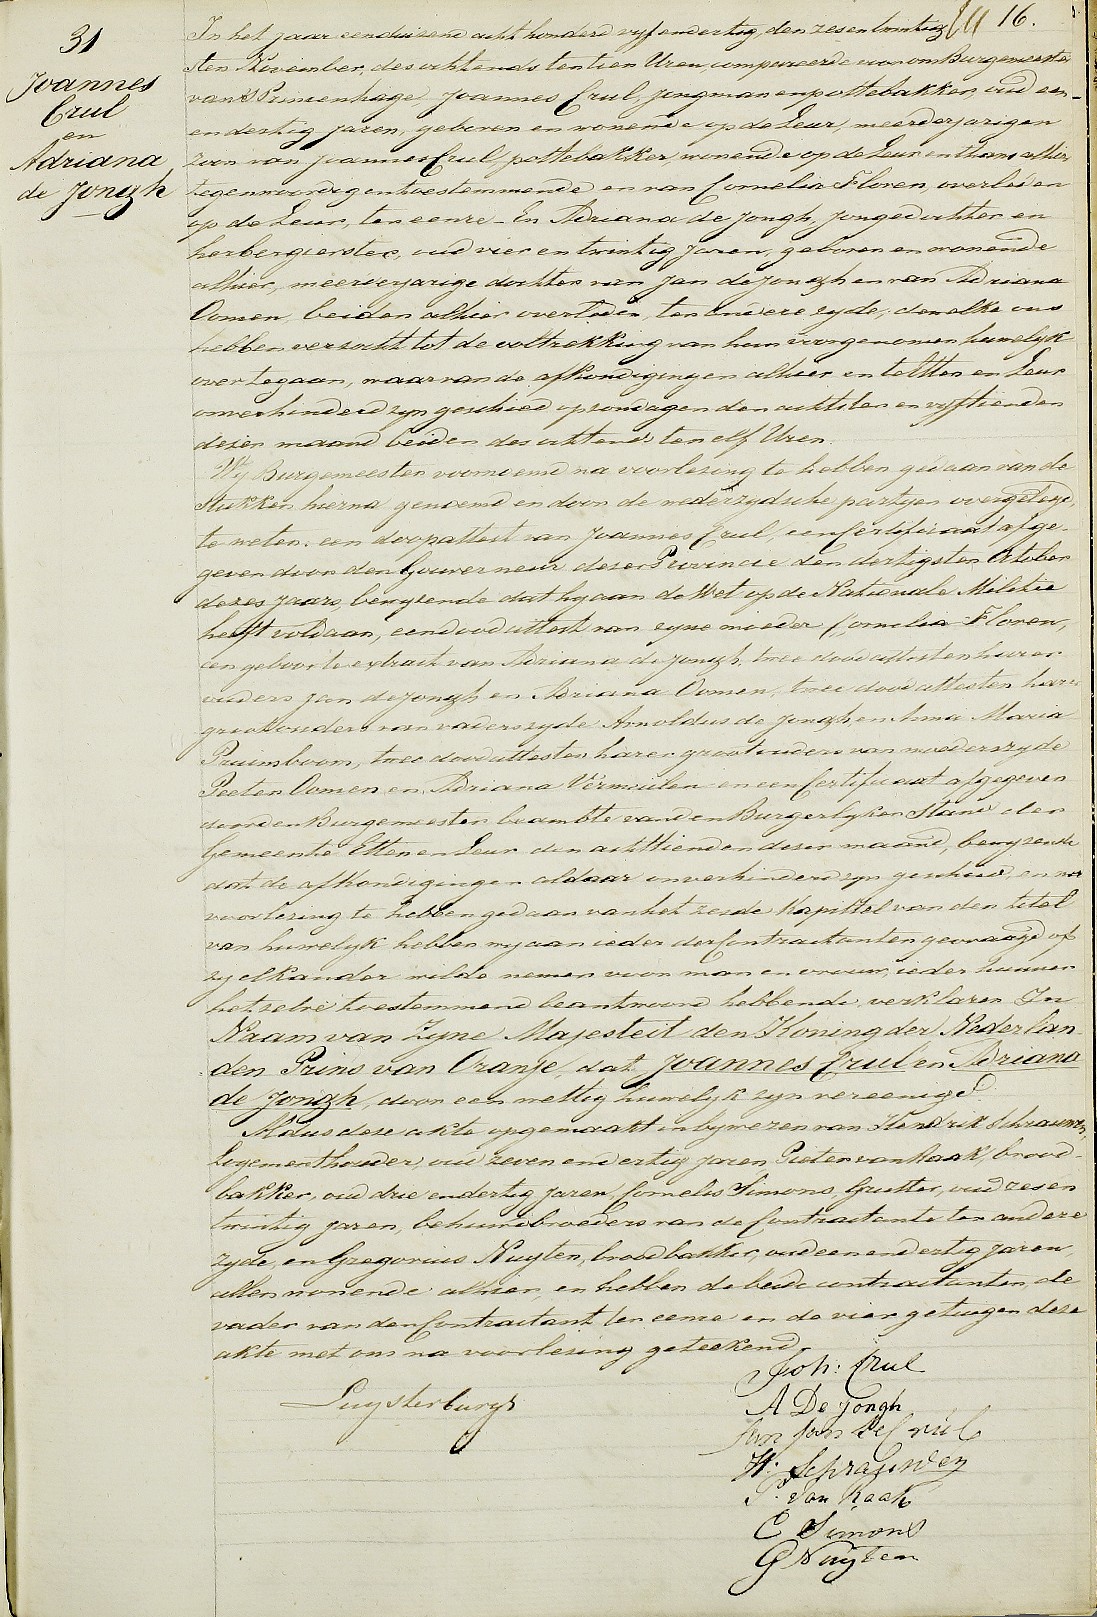 31
Joannes
Crul
en
Adriana
de Jongh
16.
In het jaar eenduizend acht honderd vyf en dertig, den zes en twintig
sten November, des ochtends ten tien Uren, compareerde voor ons Burgemeester
van Princenhage, Joannes Crul, jongman en pottebakker, oud een
en dertig jaren, geboren en wonende op de Leur, meerderjarigen
zoon van Joannes Crul, pottebakker wonende op de Leur en thans alhier
tegenwoordig en toestemmende en van Cornelia Floren, overleden
op de Leur, ten eenre - En Adriana de Jongh, jongedochter en
herbergierster, oud vier en twintig jaren, geboren en wonende
alhier, meerderjarige dochter van Jan de Jongh en van Adriana
Oomen, beiden alhier overleden, ten andere zyde, dewelke ons
hebben verzocht tot de voltrekking van hun voorgenomen huwelyk
over te gaan, waarvan de afkondigingen alhier en te Etten en Leur
onverhinderd zyn geschied op zondagen den achtsten en vyftienden
dezer maand beiden des ochtends ten elf Uren.
Wy Burgemeester voornoemd na voorlezing te hebben gedaan van de
stukken hierna genoemd en door de wederzydsche partyen overgelegd,
te weten: een doopattest van Joannes Crul, een certificaat afge-
geven door den Gouverneur dezer Provincie den dertigsten October
dezes jaars, bewyzende dat hy aan de Wet op de Nationale Militie
heeft voldaan, een dood attest van zyne moeder Cornelia Floren,
een geboorte extract van Adriana de Jongh, twee dood attesten harer
ouders Jan de Jongh en Adriana Oomen, twee dood attesten harer
grootouders van vaderszyde Arnoldus de Jongh, en Anna Maria
Pruimboom, twee dood attesten harer grootouders van moederszyde
Peeter Oomen en Adriana Vermeulen en een Certificaat afgegeven
door den Burgemeester beambte van den Burgerlyken Stand der
Gemeente Etten en Leur den achttienden dezer maand, bewyzende
dat de afkondigingen aldaar onverhinderd zyn geschied, en na
voorlezing te hebben gedaan van het zesde Kapittel van den titel
van huwelyk hebben wy aan ieder der Contractanten gevraagd of
zy elkander wilde nemen voor man en vrouw, ieder hunner
hetzelve toestemmend beantwoord hebbende, verklaren In
Naam van Zyne Majesteit den Koning der Nederlan
den Prins van Oranje, dat Joannes Crul en Adriana
de Jongh, door een wettig huwelyk zyn vereenigd.
Aldus deze akte opgemaakt in bywezen van Hendrik Schrauwen,
Logementhouder, oud zeven en dertig jaren, Pieter van Raak, brood-
bakker, oud drie en dertig jaren, Cornelis Simons, Grutter, oud zes en
twintig jaren, behuwdbroeders van de Contractante ter andere
zyde, en Gregorius Nuyten, broodbakker, oud een en dertig jaren,
allen wonende alhier, en hebben de beide contractanten, de
vader van den Contractant ten eenre en de vier getuigen deze
akte met ons na voorlezing geteekend.
Joh: Crul
Luysterburgh
A De Jongh
H: Schrauwen
P. Van Raak
C Simons
G Nuyten